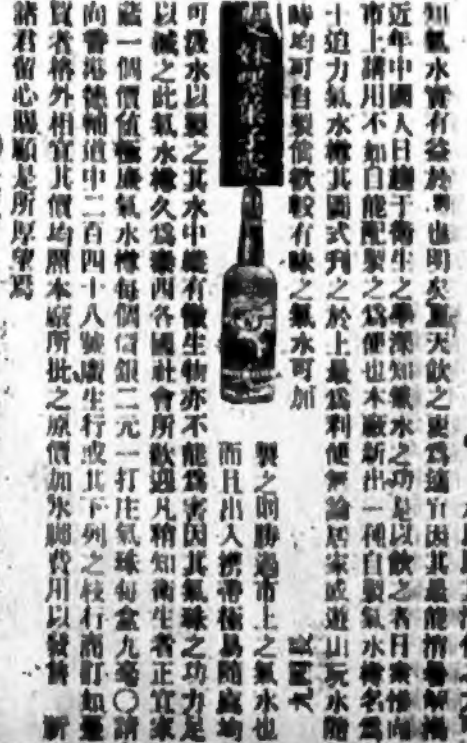 知氣水實有益於胃也明矣夏天飲之更為適宜因其最能消暑解渴
近年中國人日趨于衛生之學深知氣水之功是以飲之者日衆惟向
市上購用不如自能配製之為便也本廠新出一種自製氣水樽名為
士迫力氣水樽其圖式刋之於上最為利便無論居家或遊山玩水隨
時均可自製飲較有味之氣水可加
雙妹嘜菓子露
製之則勝過市上之氣水也
而且出入攜帶極易隨處均
可汲水以製之其水中縱有微生物亦不能為害因其氣球之功力足
以滅之此氣水樽久為泰西各國社會所歡迎凡稍知衛生者正宜家
藏一個價值極廉氣水樽每個信銀二元一打庄氣球每盒九毫〇請
向香港德輔道中二百四十八號廣生行或其下列之枝行商訂如
買者格外相宜其價均照本廠所批之原價加水脚費用以發售
諸君留心賜顧是所厚望焉